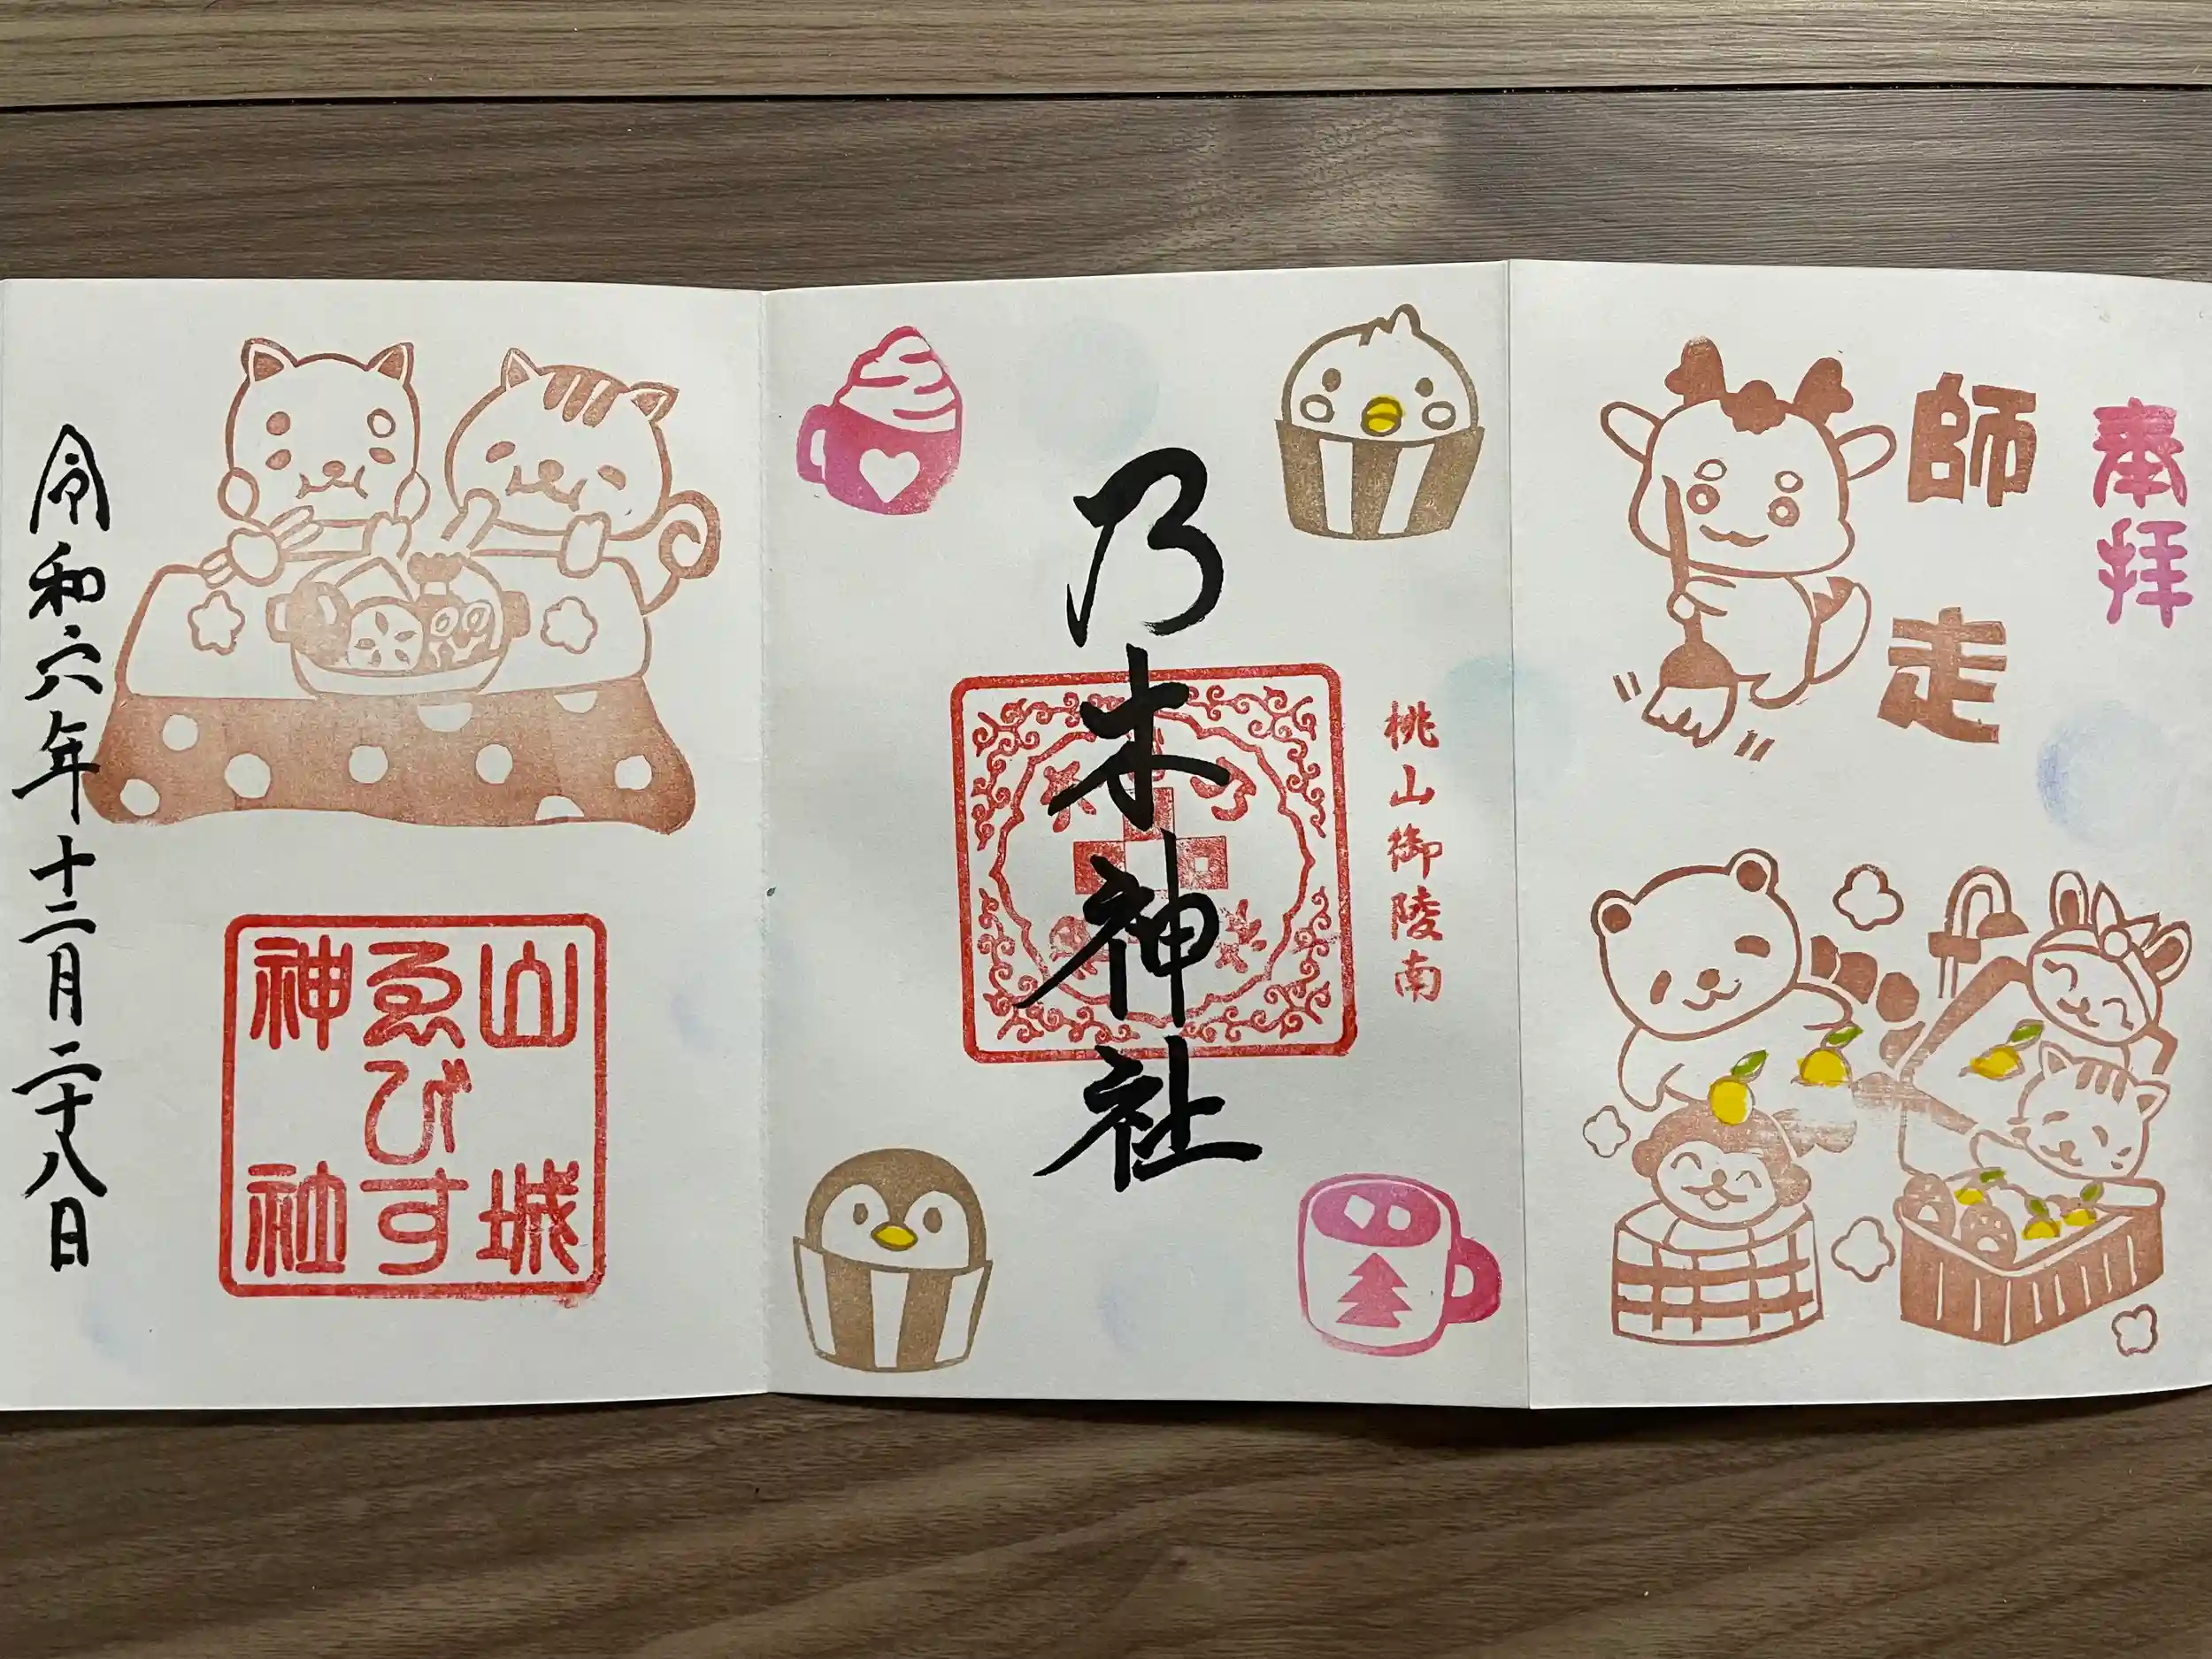 奉拝
師走
桃山御陵南
乃木神社
乃木
山城
ゑびす
神社
令和六年十二月二十八日